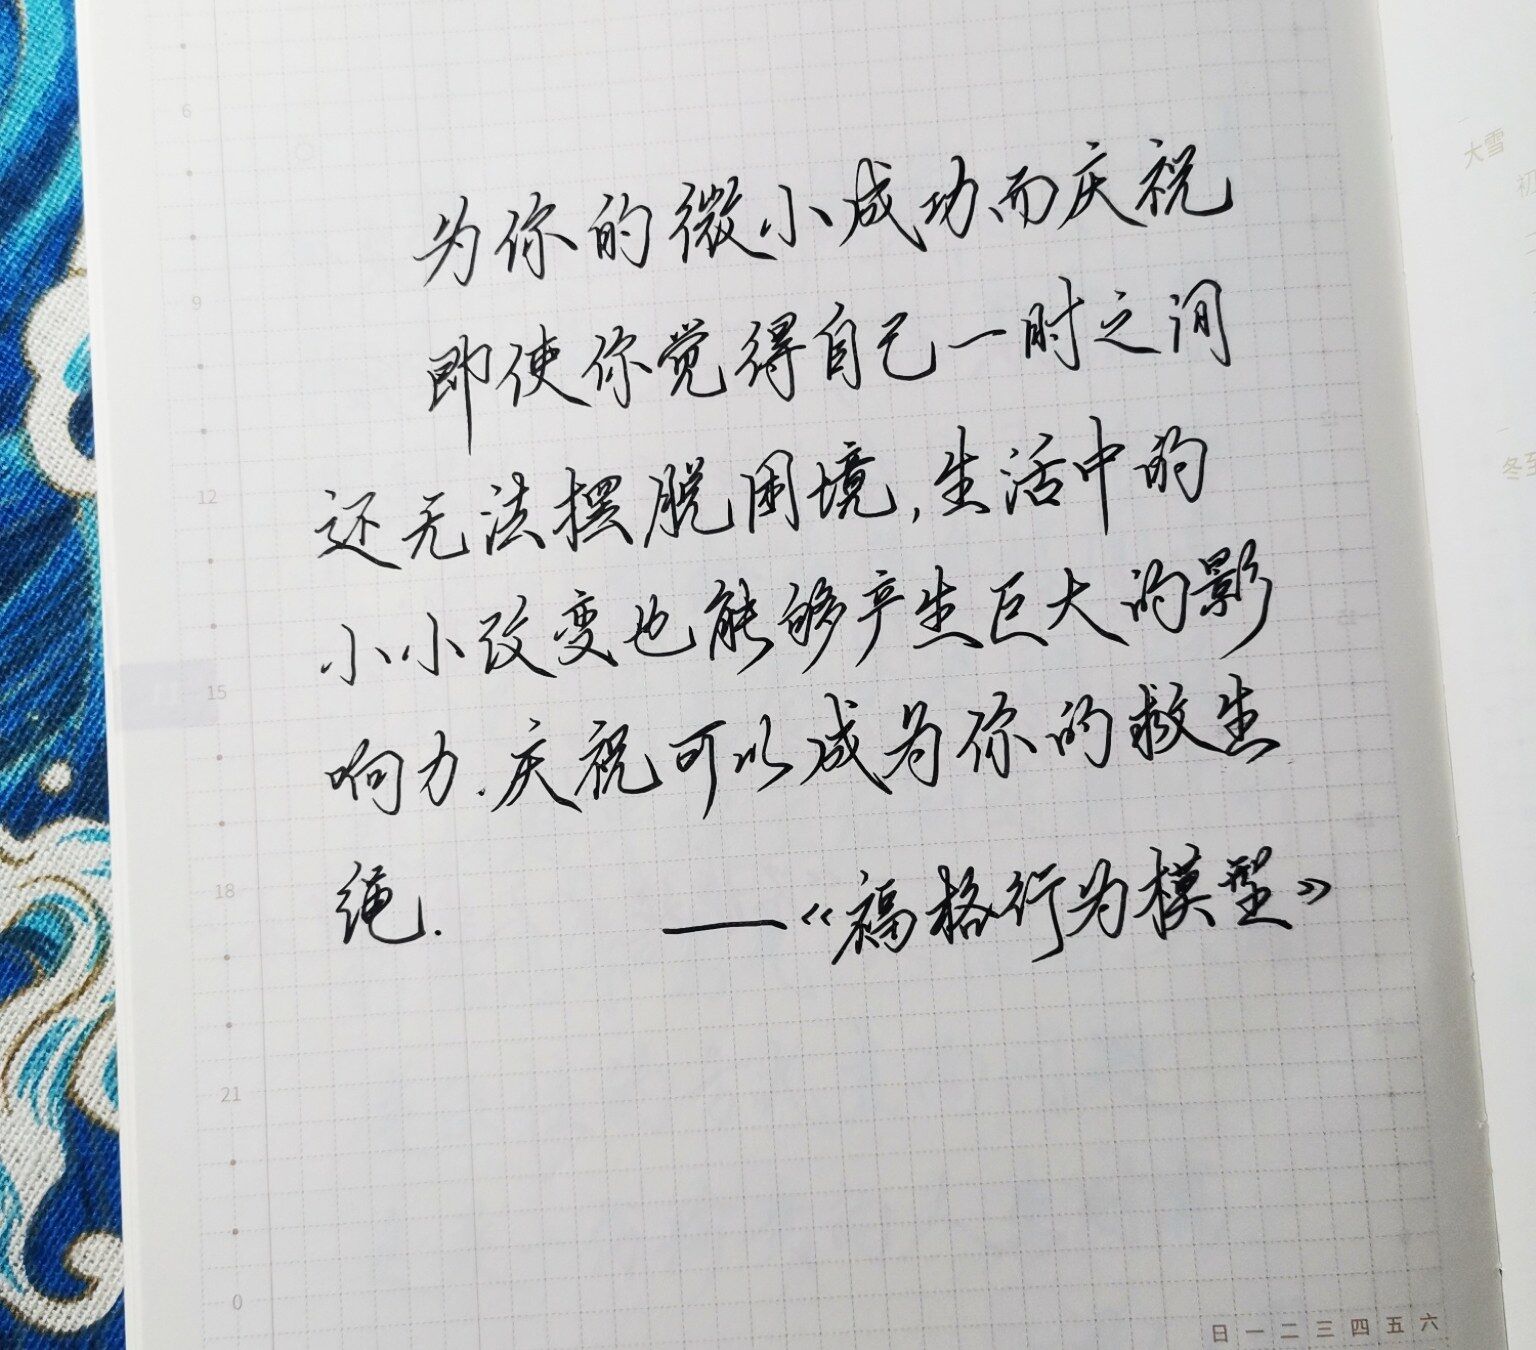 为你的微小成功而庆祝
即使你觉得自己一时之间
还无法摆脱困境,生活中的
小小改变也能够产生巨大的影
响力.庆祝可以成为你的救生
绳.
——《福格行为模型》
6
9
12
15
18
21
0
日 一 二 三 四 五 六
大雪
初
冬至